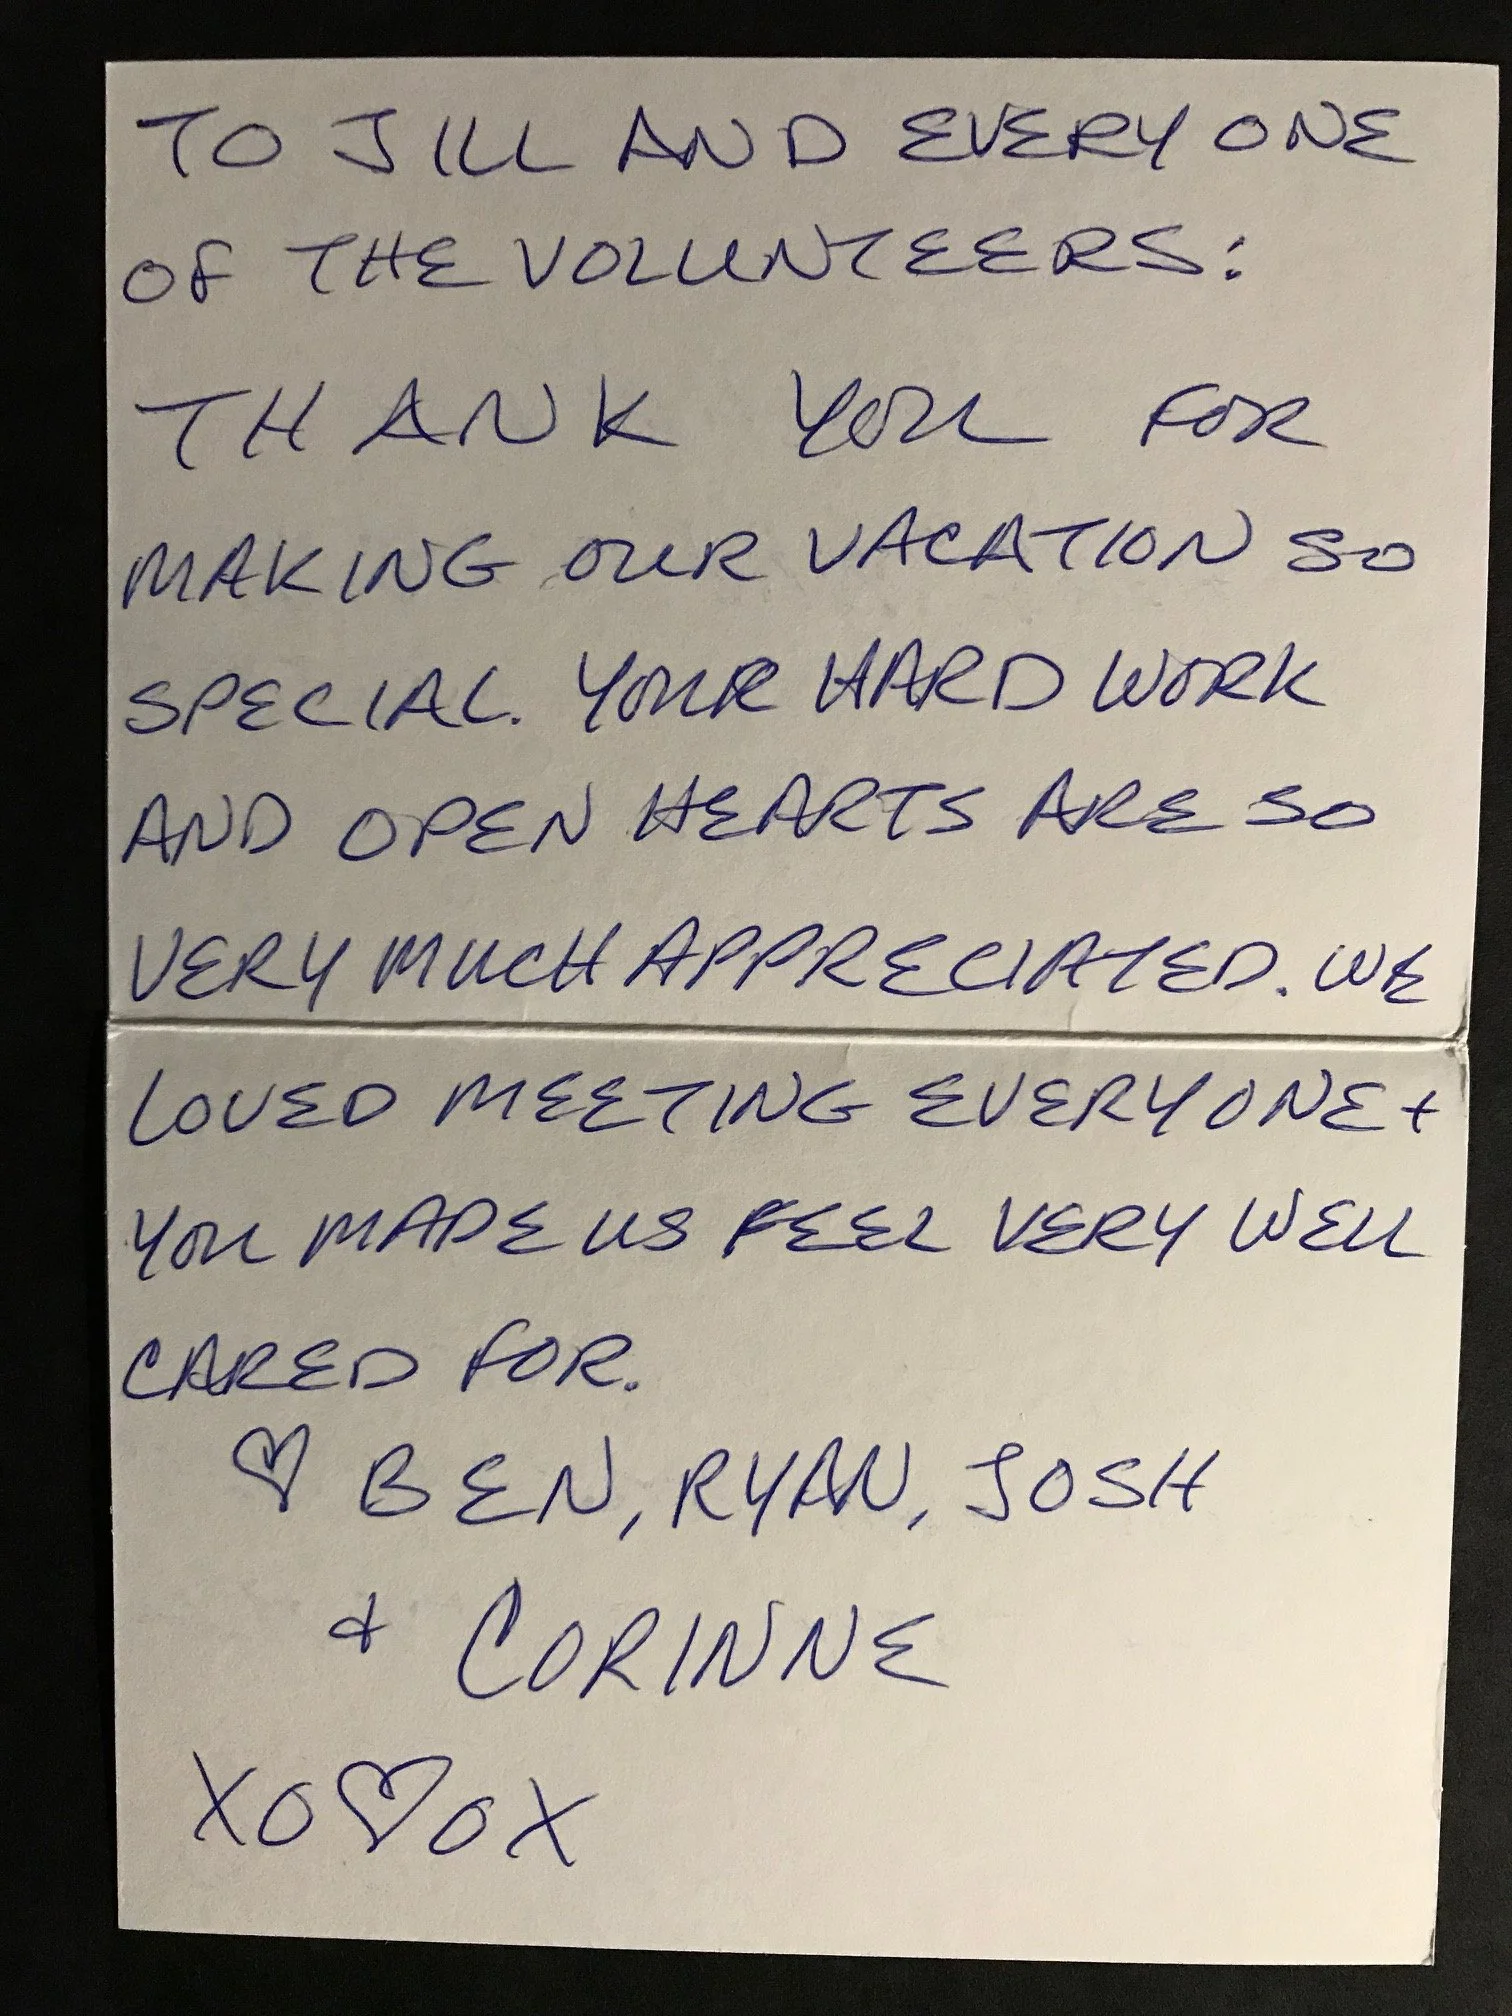 TO JILL AND EVERYONE
OF THE VOLUNTEERS:
THANK YOU FOR
MAKING OUR VACATION SO
SPECIAL. YOUR HARD WORK
AND OPEN HEARTS ARE SO
VERY MUCH APPRECIATED. WE
LOVED MEETING EVERYONE +
YOU MADE US FEEL VERY WELL
CARED FOR.
♡ BEN, RYAN, JOSH
+ CORINNE
XO♡OX